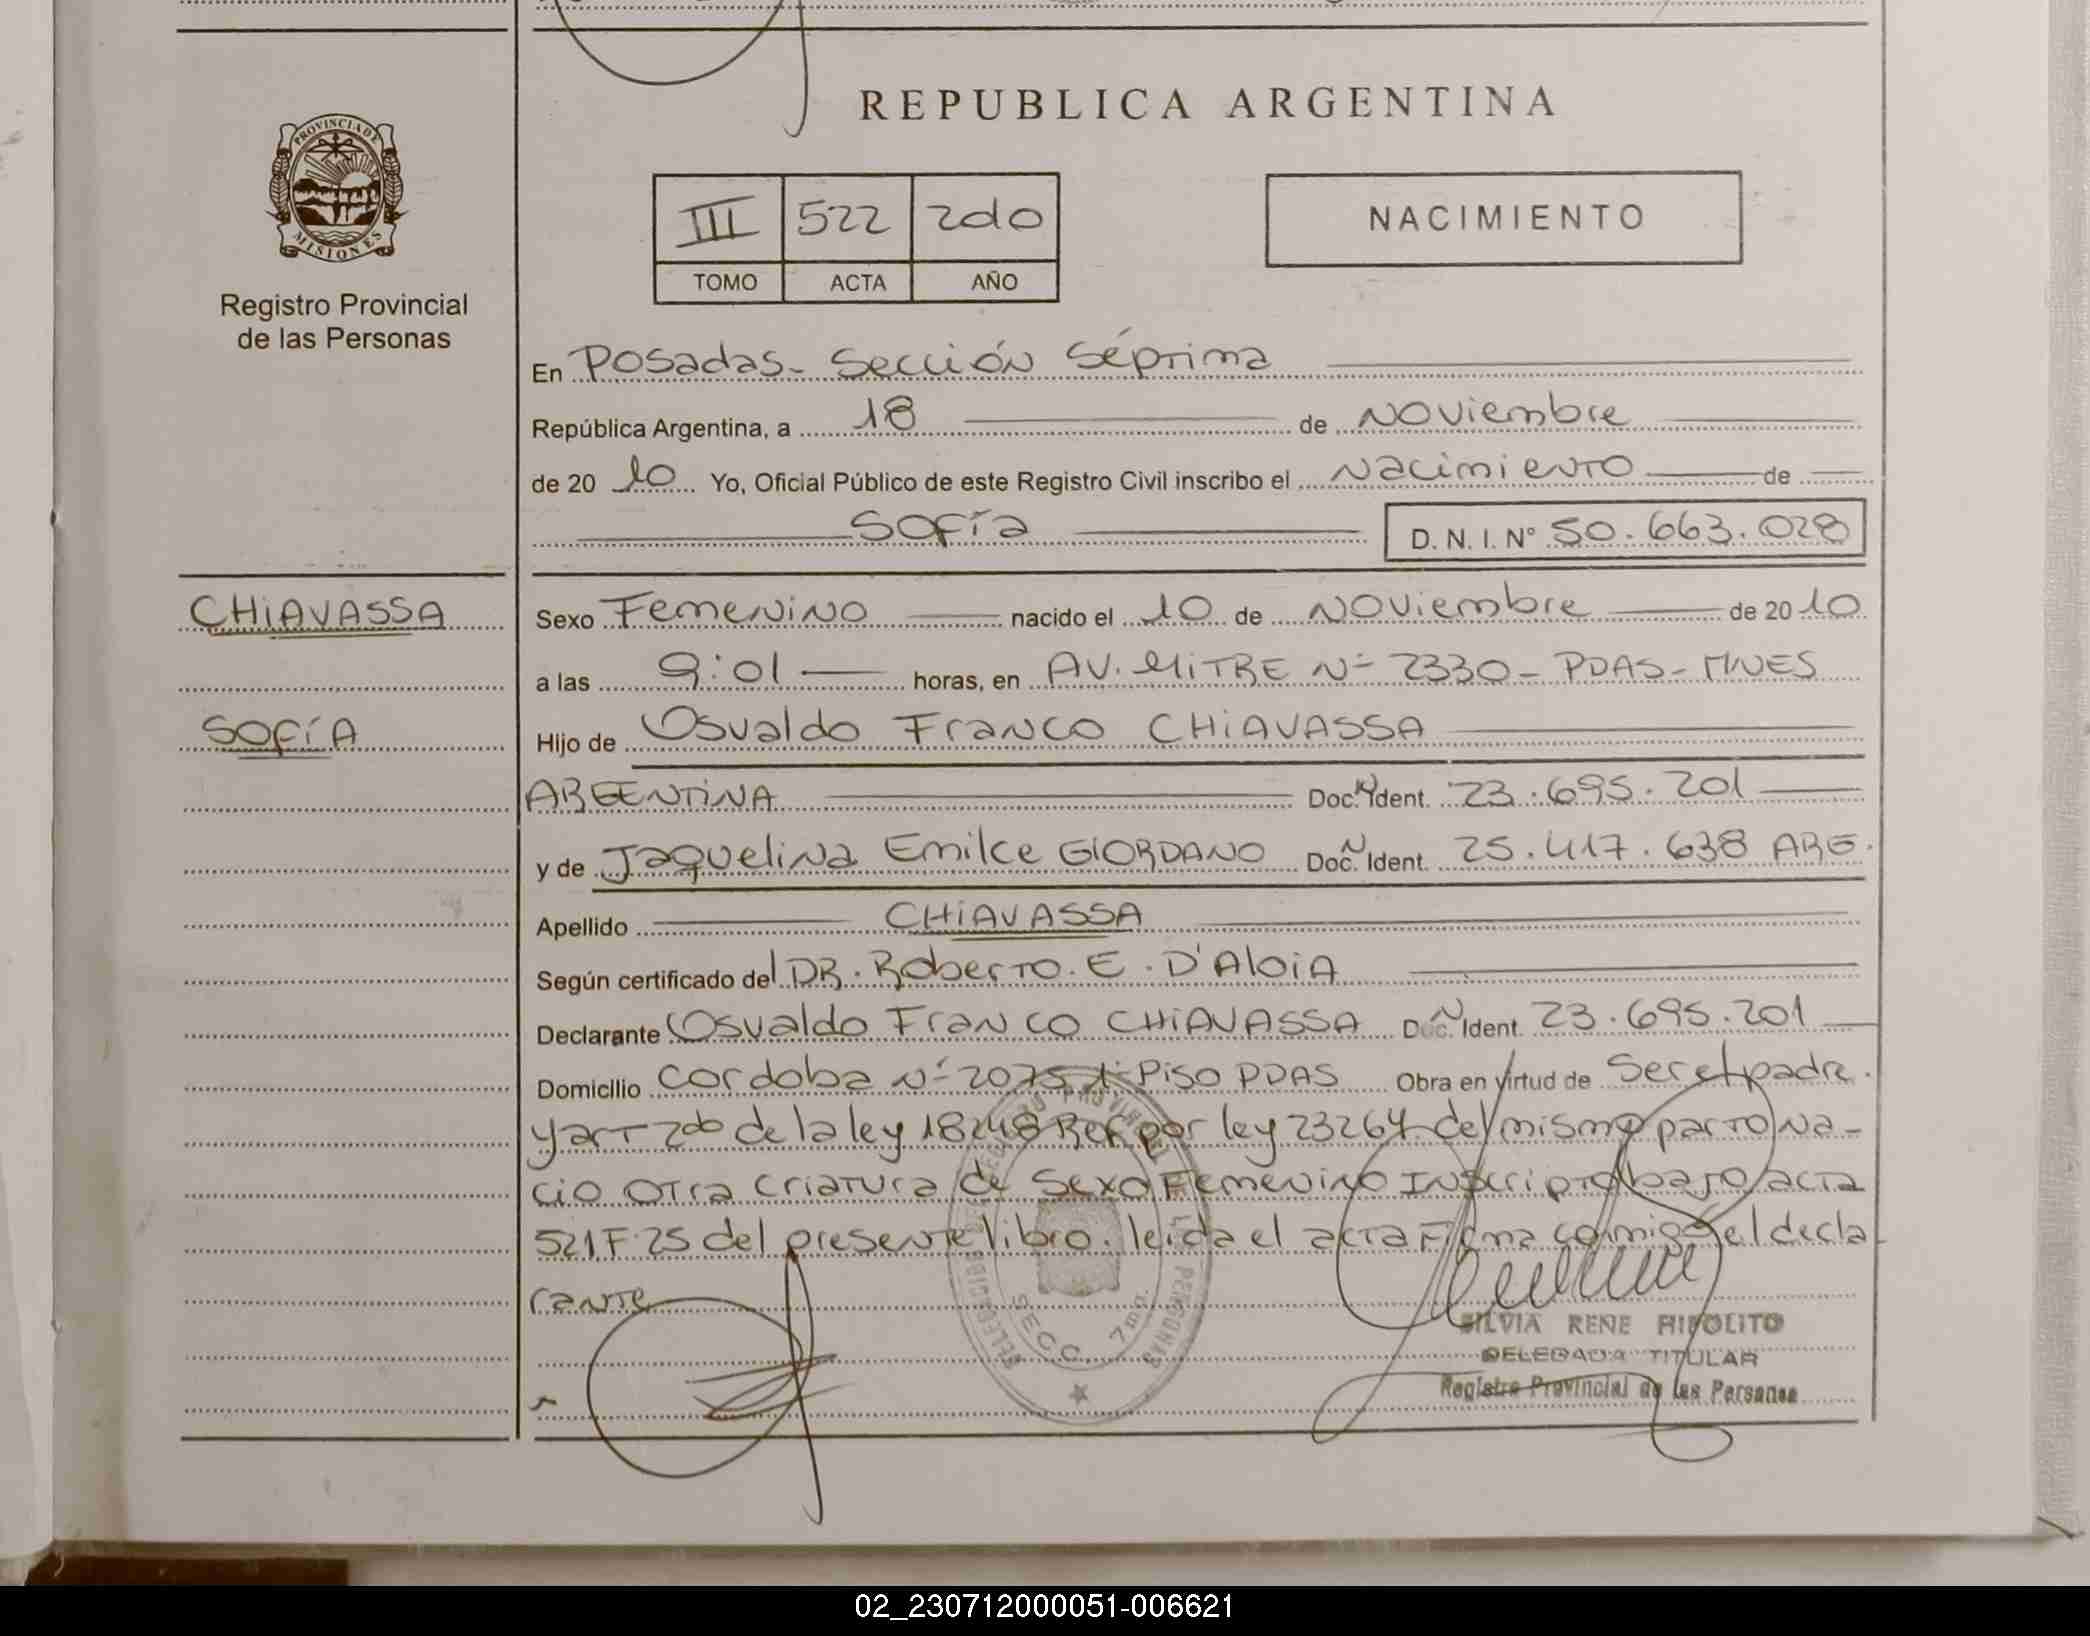 REPUBLICA ARGENTINA
PROVINCIA DE
MISIONES
Registro Provincial
de las Personas
III 522 2010
TOMO ACTA AÑO
NACIMIENTO
En Posadas - Sección Séptima
República Argentina, a 18 de Noviembre
de 20 10 Yo, Oficial Público de este Registro Civil inscribo el Nacimiento de
Sofía D. N. I. Nº 50.663.028
CHIAVASSA
SOFÍA
Sexo Femenino nacido el 10 de Noviembre de 2010
a las 9:01 horas, en AV. MITRE Nº 2330 - PDAS - MNES
Hijo de Osvaldo Franco CHIAVASSA
ARGENTINA Doc. N Ident. 23.695.201
y de Jaquelina Emilce GIORDANO Doc. N Ident. 25.417.638 ARG.
Apellido CHIAVASSA
Según certificado del DR. Roberto. E. D'AloiA
Declarante Osvaldo Franco CHIAVASSA Doc. N Ident. 23.695.201
Domicilio Cordoba Nº 2075 1º Piso PDAS Obra en virtud de Ser el padre.
y art 2do de la ley 18248 Ref por ley 23264 del mismo parto na-
cio otra criatura de Sexo Femenino Inscripto bajo acta
521 F 25 del presente libro. leida el acta Firma conmigo el decla
rante
SECC. 7ma.
SILVIA RENE HIPOLITO
DELEGADA TITULAR
Registro Provincial de las Personas
02_230712000051-006621